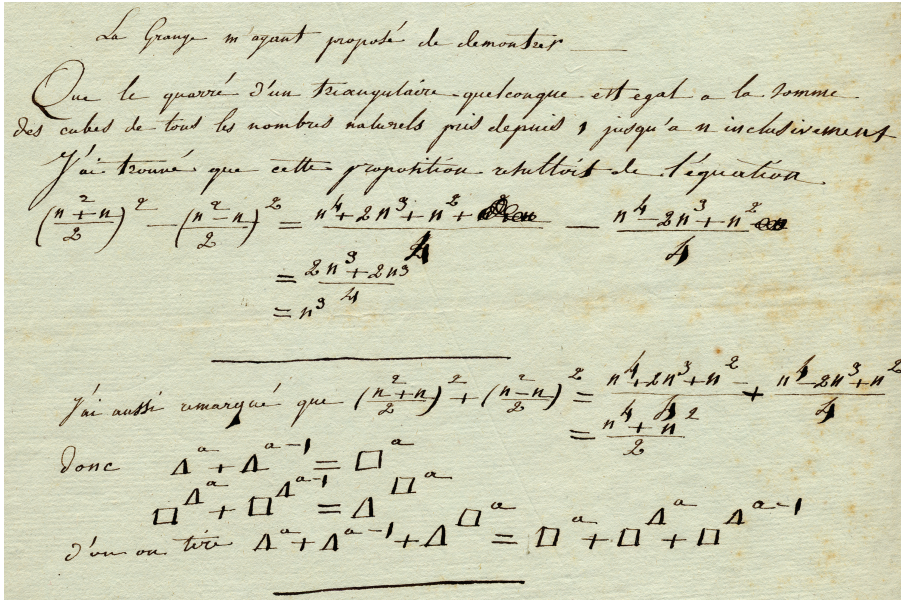 La Grange m'ayant proposé de demontrer
Que le quarré d'un triangulaire quelconque est egal a la somme
des cubes de tous les nombres naturels pris depuis 1 jusqu'a n inclusivement
J'ai trouvé que cette proposition resultoit de l'équation
(n²+n/2)² − (n²−n/2)² = n⁴+2n³+n²+/4 − n⁴−2n³+n²/4
= 2n³+2n³/4
= n³
J'ai aussi remarqué que (n²+n/2)² + (n²−n/2)² = n⁴+2n³+n²/4 + n⁴−2n³+n²/4
= n⁴+n²/2
donc Δᵃ + Δᵃ⁻¹ = □ᵃ
□^Δᵃ + □^Δᵃ⁻¹ = Δ^□ᵃ
d'ou on tire Δᵃ + Δᵃ⁻¹ + Δ^□ᵃ = □ᵃ + □^Δᵃ + □^Δᵃ⁻¹